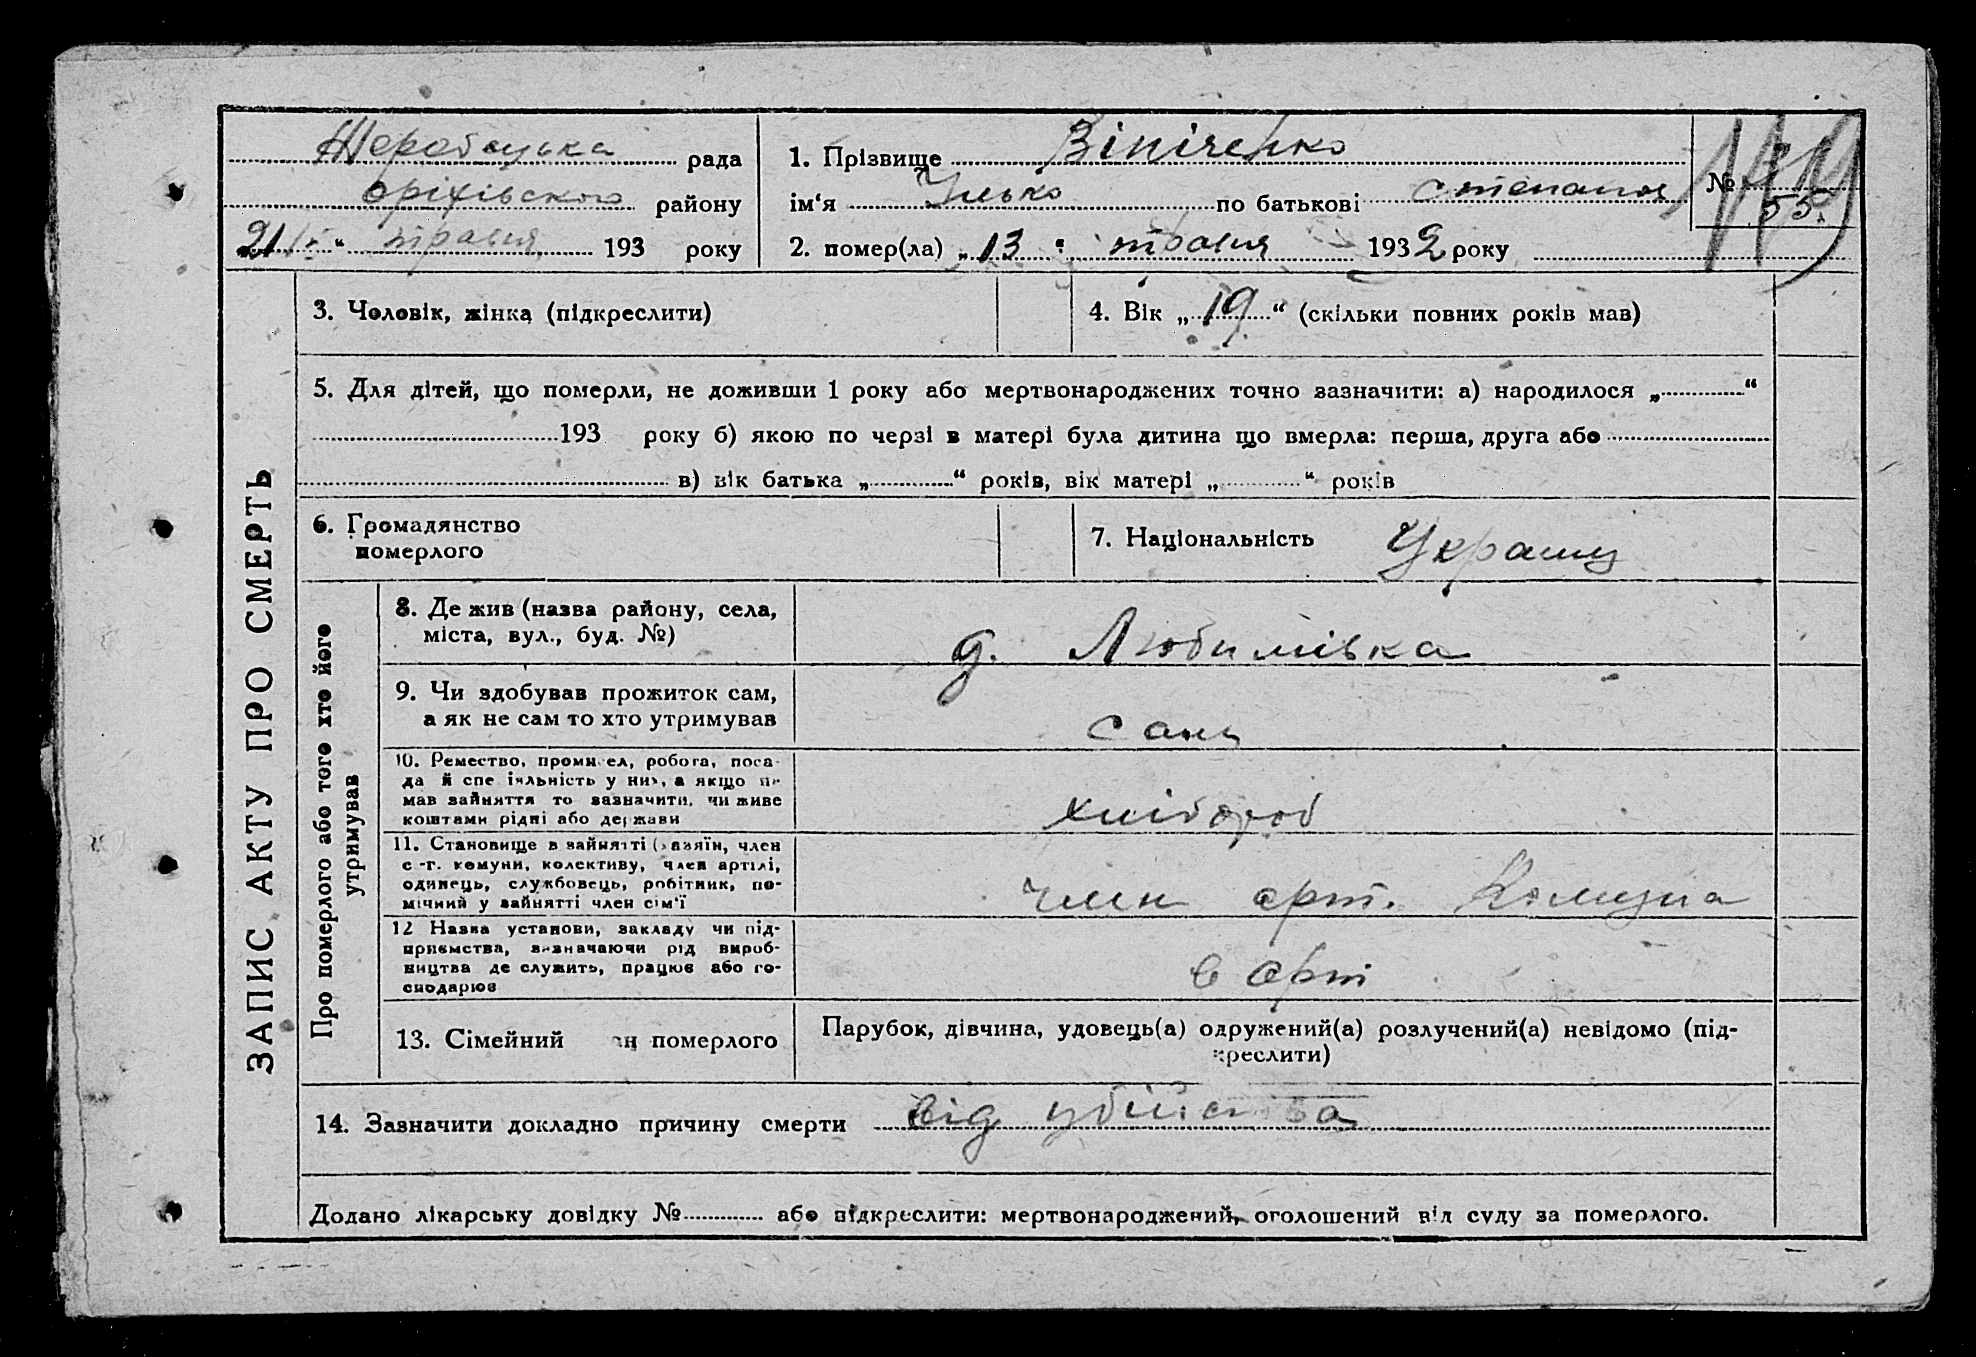 Жеребецька рада
Оріхівського району
21/V " травня 193 року
1. Прізвище Зініченко
ім'я Илько по батькові степанов
№ 55
2. помер(ла) „13" травня 1932 року
ЗАПИС АКТУ ПРО СМЕРТЬ
3. Чоловік, жінка (підкреслити)
4. Вік „19" (скільки повних років мав)
5. Для дітей, що померли, не доживши 1 року або мертвонароджених точно зазначити: а) народилося „ "
193 року б) якою по черзі в матері була дитина що вмерла: перша, друга або
в) вік батька „ " років, вік матері „ " років
6. Громадянство
померлого
7. Національність Украинц
Про померлого або того хто його
утримував
8. Де жив (назва району, села,
міста, вул., буд. №)
д. Любимівка
9. Чи здобував прожиток сам,
а як не сам то хто утримував
сам
10. Ремество, промисел, робота, поса-
да й спеціяльність у них, а якщо не
мав зайняття то зазначити, чи живе
коштами рідні або держави
хлібороб
11. Становище в зайнятті (хазяїн, член
с.-г. комуни, колективу, член артілі,
одинець, службовець, робітник, по-
мічний у зайнятті член сім'ї
член арт.
12 Назва установи, закладу чи під-
приємства, визначаючи рід вироб-
ництва де служить, працює або го-
сподарює
в арт
13. Сімейний ан померлого
Парубок, дівчина, удовець(а) одружений(а) розлучений(а) невідомо (під-
креслити)
14. Зазначити докладно причину смерти від убійства
Додано лікарську довідку № або підкреслити: мертвонароджений, оголошений від суду за померлого.